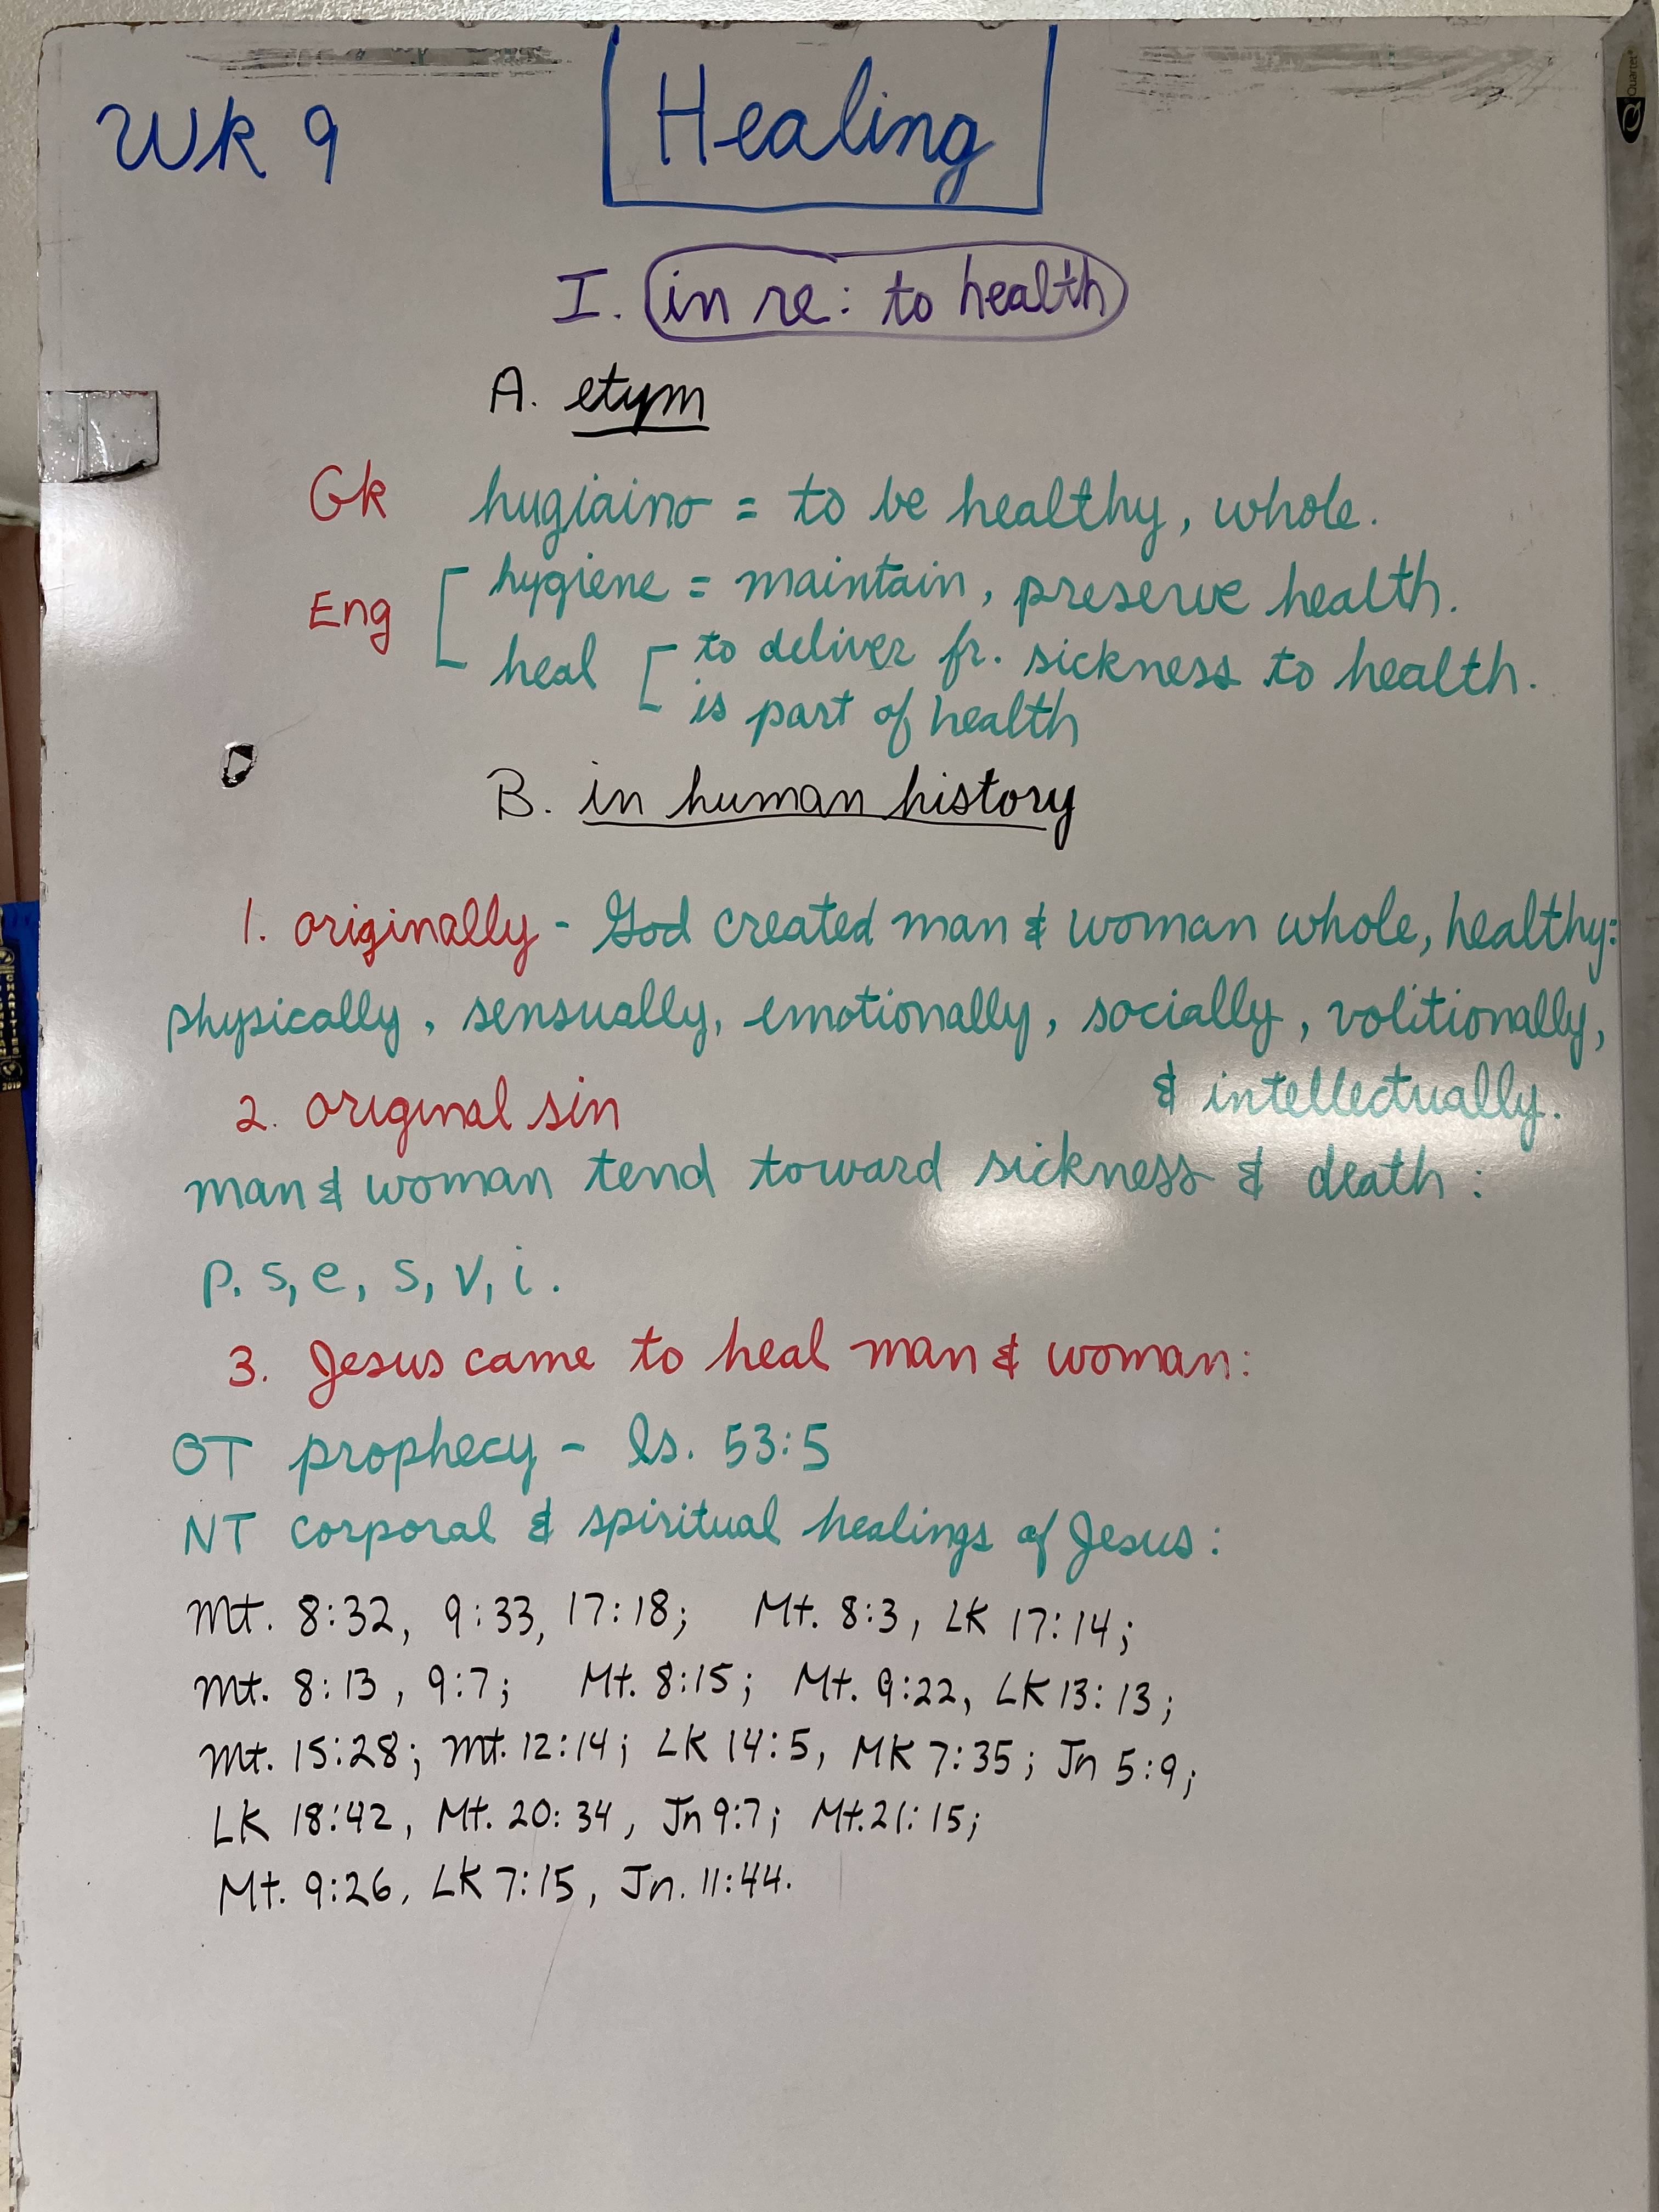 Wk 9
Healing
I. in re: to health
A. etym
Gk hugiaino = to be healthy, whole.
Eng hygiene = maintain, preserve health.
heal to deliver fr. sickness to health.
is part of health
B. in human history
1. originally - God created man & woman whole, healthy:
physically, sensually, emotionally, socially, volitionally,
& intellectually.
2. original sin
man & woman tend toward sickness & death:
p. s, e, s, v, i.
3. Jesus came to heal man & woman:
OT prophecy - Is. 53:5
NT corporal & spiritual healings of Jesus:
Mt. 8:32, 9:33, 17:18; Mt. 8:3, LK 17:14;
Mt. 8:13, 9:7; Mt. 8:15; Mt. 9:22, LK 13:13;
Mt. 15:28; Mt. 12:14; LK 14:5, MK 7:35; Jn 5:9;
LK 18:42, Mt. 20:34, Jn 9:7; Mt. 21:15;
Mt. 9:26, LK 7:15, Jn. 11:44.
Quartet
CHARITIES
2019